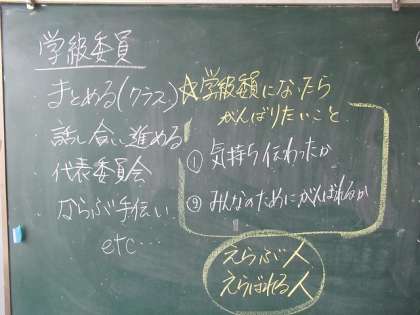 学級委員
まとめる(クラス)
話し合い進める
代表委員会
ならぶ手伝い
etc…
☆学級委員になったら
がんばりたいこと
① 気持ち伝わったか
② みんなのためにがんばれるか
えらぶ人
えらばれる人